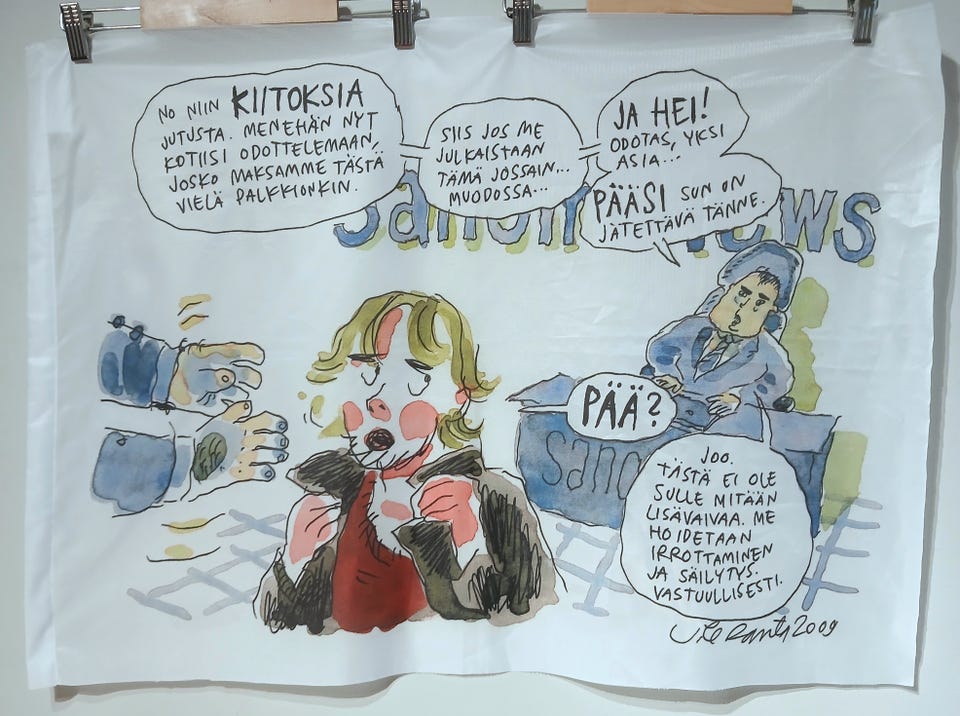 NO NIIN KIITOKSIA
JUTUSTA. MENEHÄN NYT
KOTIISI ODOTTELEMAAN,
JOSKO MAKSAMME TÄSTÄ
VIELÄ PALKKIONKIN.
SIIS JOS ME
JULKAISTAAN
TÄMÄ JOSSAIN...
MUODOSSA...
JA HEI!
ODOTAS, YKSI
ASIA...
PÄÄSI SUN ON
JÄTETTÄVÄ TÄNNE.
PÄÄ?
JOO.
TÄSTÄ EI OLE
SULLE MITÄÄN
LISÄVAIVAA. ME
HOIDETAAN
IRROTTAMINEN
JA SÄILYTYS.
VASTUULLISESTI.
2009